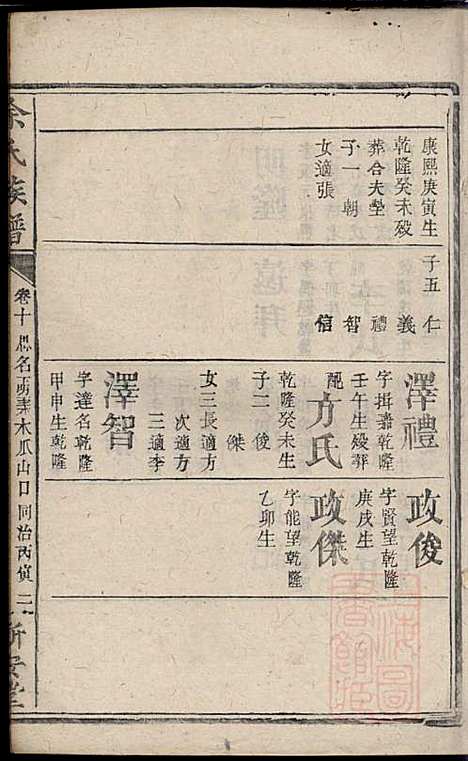 康熙庚寅生
乾隆癸未殁
葬合夫塋
子一朝
女適張
子五 仁
義
禮
智
信
澤禮
字揖嘉乾隆
壬午生殁葬
配方氏
乾隆癸未生
子二 俊
傑
女三長適方
次適方
三適李
澤智
字達名乾隆
甲申生乾隆
政俊
字賢望乾隆
庚戌生
政傑
字能望乾隆
乙卯生
余氏族譜
卷十
木瓜山口
同治丙寅
二
新安堂
上海圖
書館藏